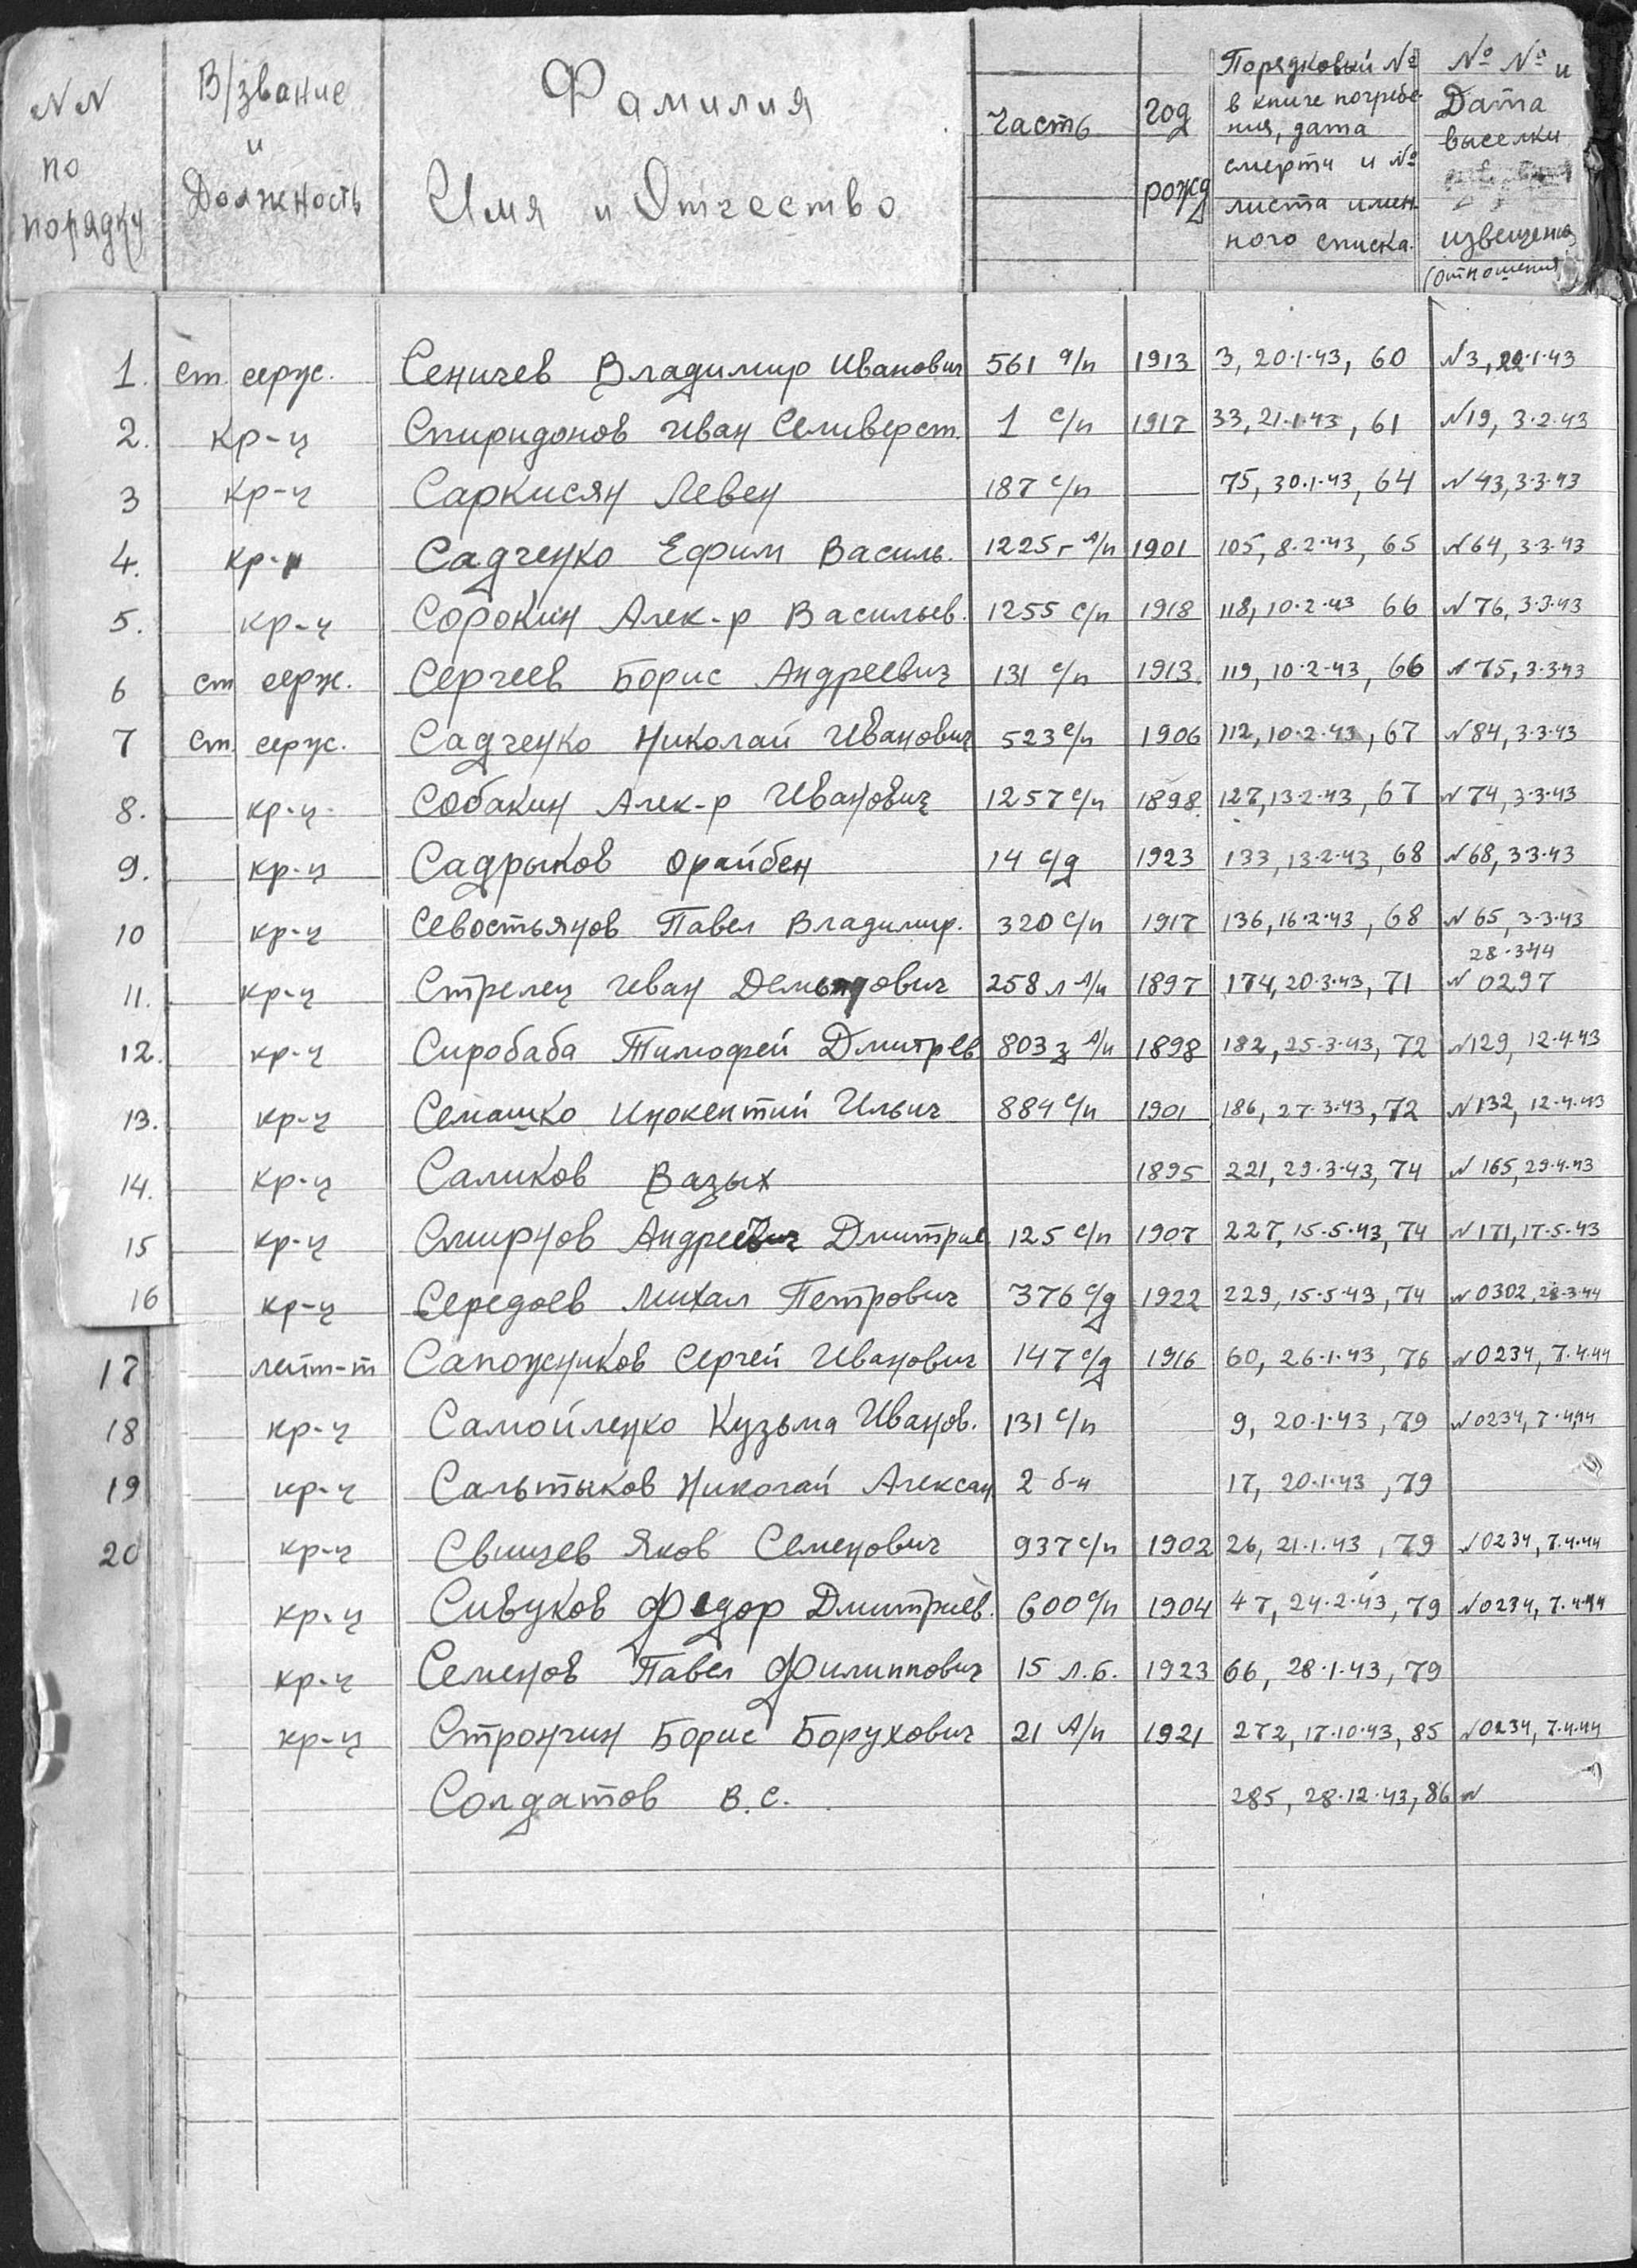 NN по порядку
В/звание и Должность
Фамилия Имя и Отчество
Часть
Год рожд
Порядковый № в книге погребения, дата смерти и № листа имен ного списка.
№ № и Дата высылки извещения (отношения)
1. ст серж. Сеничев Владимир Иванович 561 а/п 1913 3, 20.1.43, 60 N3, 22.1.43
2. кр-ц Спиридонов Иван Селиверст. 1 с/п 1917 33, 21.1.43, 61 N19, 3.2.43
3 кр-ц Саркисян Левен 187 с/п 75, 30.1.43, 64 N 43, 3.3.43
4. кр-ц Садченко Ефим Василь. 1225 г А/п 1901 105, 8.2.43, 65 N64, 3.3.43
5. кр-ц Сорокин Алек-р Васильев. 1255 с/п 1918 118, 10.2.43 66 N 76, 3.3.43
6 ст серж. Сергеев Борис Андреевич 131 с/п 1913 119, 10.2.43, 66 N 75, 3.3.43
7 ст. серж. Садченко Николай Иванович 523 с/п 1906 112, 10.2.43, 67 N 84, 3.3.43
8. кр-ц. Собакин Алек-р Иванович 1257 с/п 1898. 127, 13.2.43, 67 N 74, 3.3.43
9. кр-ц Садрыков Орайбен 14 с/д 1923 133, 13.2.43, 68 N 68, 3.3.43
10 кр-ц Севостьянов Павел Владимир. 320 с/п 1917 136, 16.2.43, 68 N 65, 3.3.43
28.3.44
11. кр-ц Стрелец Иван Демьянович 258 л А/п 1897 174, 20.3.43, 71 N 0297
12. кр-ц Сиробаба Тимофей Дмитрев 803 з А/п 1898 182, 25.3.43, 72 N129, 12.4.43
13. кр-ц Семашко Инокентий Ильич 884 с/п 1901 186, 27.3.43, 72 N 132, 12.4.43
14. кр-ц Саликов Вазых 1895 221, 29.3.43, 74 N 165, 29.4.43
15 кр-ц Смирнов Андреевич Дмитрие 125 с/п 1907 227, 15.5.43, 74 N 171, 17.5.43
16 кр-ц Середоев Михал Петрович 376 с/д 1922 229, 15.5.43, 74 N 0302, 28.3.44
17 лейт-т Сапожников Сергей Иванович 147 с/д 1916 60, 26.1.43, 76 N0234, 7.4.44
18 кр-ц Самойленко Кузьма Иванов. 131 с/п 9, 20.1.43, 79 N0234, 7.4.44
19 кр-ц Салтыков Николай Алексан 2 б-н 17, 20.1.43, 79
20 кр-ц Свищев Яков Семенович 937 с/п 1902 26, 21.1.43, 79 N0234, 7.4.44
кр-ц Сивуков Федор Дмитриев. 600 с/п 1904 47, 24.2.43, 79 N0234, 7.4.44
кр-ц Семенов Павел Филиппович 15 л.б. 1923 66, 28.1.43, 79
кр-ц Строчгин Борис Борухович 21 А/п 1921 272, 17.10.43, 85 N0234, 7.4.44
Солдатов В.С. 285, 28.12.43, 86 N